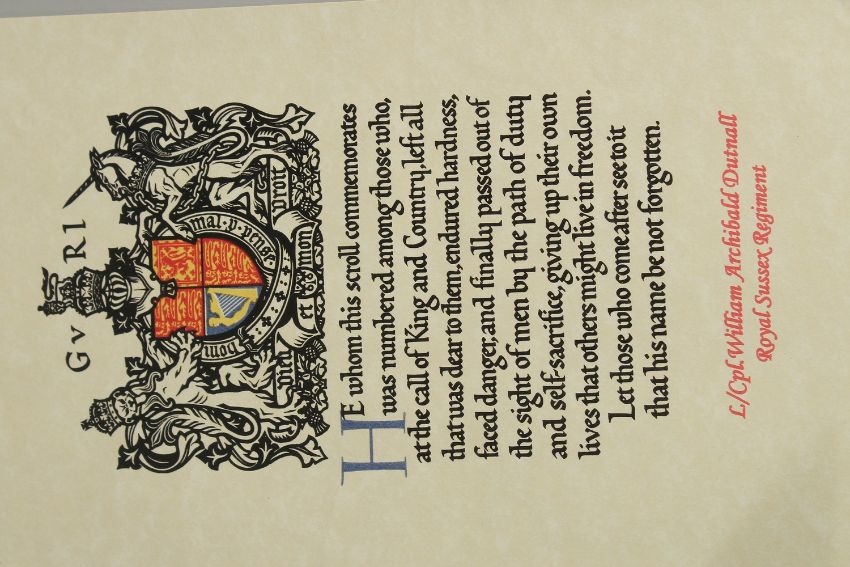 GvRI
honi mal·y·pense
Dieu et mon droit
HE whom this scroll commemorates
was numbered among those who,
at the call of King and Country, left all
that was dear to them, endured hardness,
faced danger, and finally passed out of
the sight of men by the path of duty
and self-sacrifice, giving up their own
lives that others might live in freedom.
Let those who come after see to it
that his name be not forgotten.
L/Cpl. William Archibald Dutnall
Royal Sussex Regiment